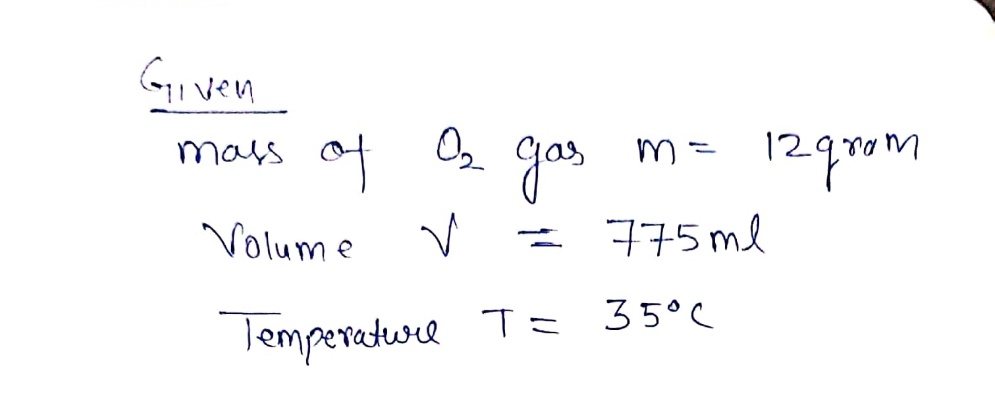 Given
mass of O₂ gas m = 12gram
Volume V = 775ml
Temperature T = 35°C